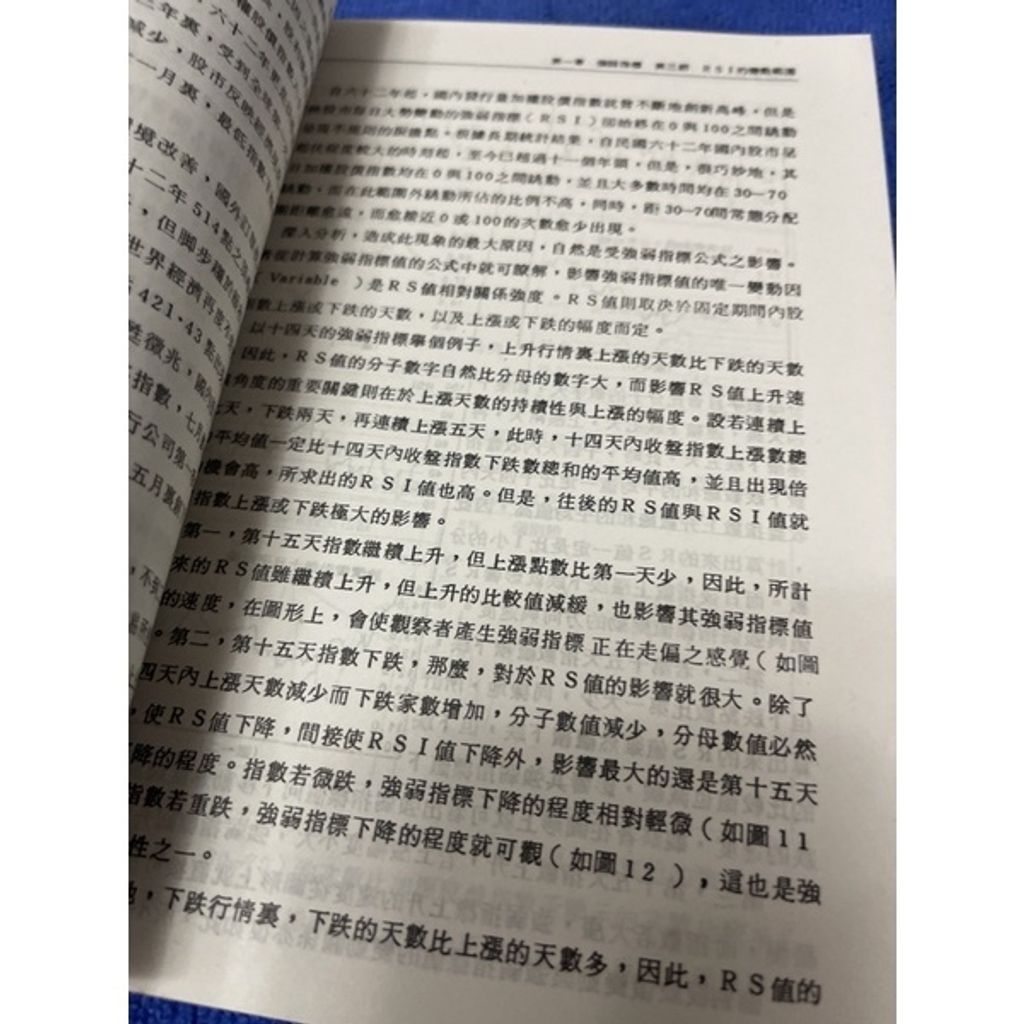 二年裏，受到全球
減少，股市反映
一月裏，最低指數
境改善，國外訂
十二年514點之
，但脚步蹣
世界經濟再度
421·43點
甦徵兆，
指數，七月
行公司第一
五月裏
第一章 強弱指標 第三節 RSI的變動範圍
自六十二年起，國內發行量加權股價指數就曾不斷地創新高峰，但是
股市每日大勢變動的強弱指標（RSI）卻始終在0與100之間跳動
不規則的振盪點。根據長期統計結果，自民國六十二年國內股市呈
程度較大的時刻起，至今已超過十一個年頭，但是，很巧妙地，其
加權股價指數均在0與100之間跳動，並且大多數時間均在30—70
跳動，而在此範圍外跳動所佔的比例不高，同時，距30—70間常態分配
距離愈遠，而愈接近0或100的次數愈少出現。
深入分析，造成此現象的最大原因，自然是受強弱指標公式之影響。
從計算強弱指標值的公式中就可瞭解，影響強弱指標值的唯一變動因
Variable ）是RS值相對關係強度。RS值則取決於固定期間內股
數上漲或下跌的天數，以及上漲或下跌的幅度而定。
以十四天的強弱指標舉個例子，上升行情裏上漲的天數比下跌的天數
因此，RS值的分子數字自然比分母的數字大，而影響RS值上升速
角度的重要關鍵則在於上漲天數的持續性與上漲的幅度。設若連續上
天，下跌兩天，再連續上漲五天，此時，十四天內收盤指數上漲數總
平均值一定比十四天內收盤指數下跌數總和的平均值高，並且出現倍
機會高，所求出的RSI值也高。但是，往後的RS值與RSI值就
指數上漲或下跌極大的影響。
第一，第十五天指數繼續上升，但上漲點數比第一天少，因此，所計
來的RS值雖繼續上升，但上升的比較值減緩，也影響其強弱指標值
的速度，在圖形上，會使觀察者產生強弱指標正在走偏之感覺（如圖
。第二，第十五天指數下跌，那麼，對於RS值的影響就很大。除了
四天內上漲天數減少而下跌家數增加，分子數值減少，分母數值必然
，使RS值下降，間接使RSI值下降外，影響最大的還是第十五天
降的程度。指數若微跌，強弱指標下降的程度相對輕微（如圖11
指數若重跌，強弱指標下降的程度就可觀（如圖12 ），這也是強
性之一。
地，下跌行情裏，下跌的天數比上漲的天數多，因此，RS值的